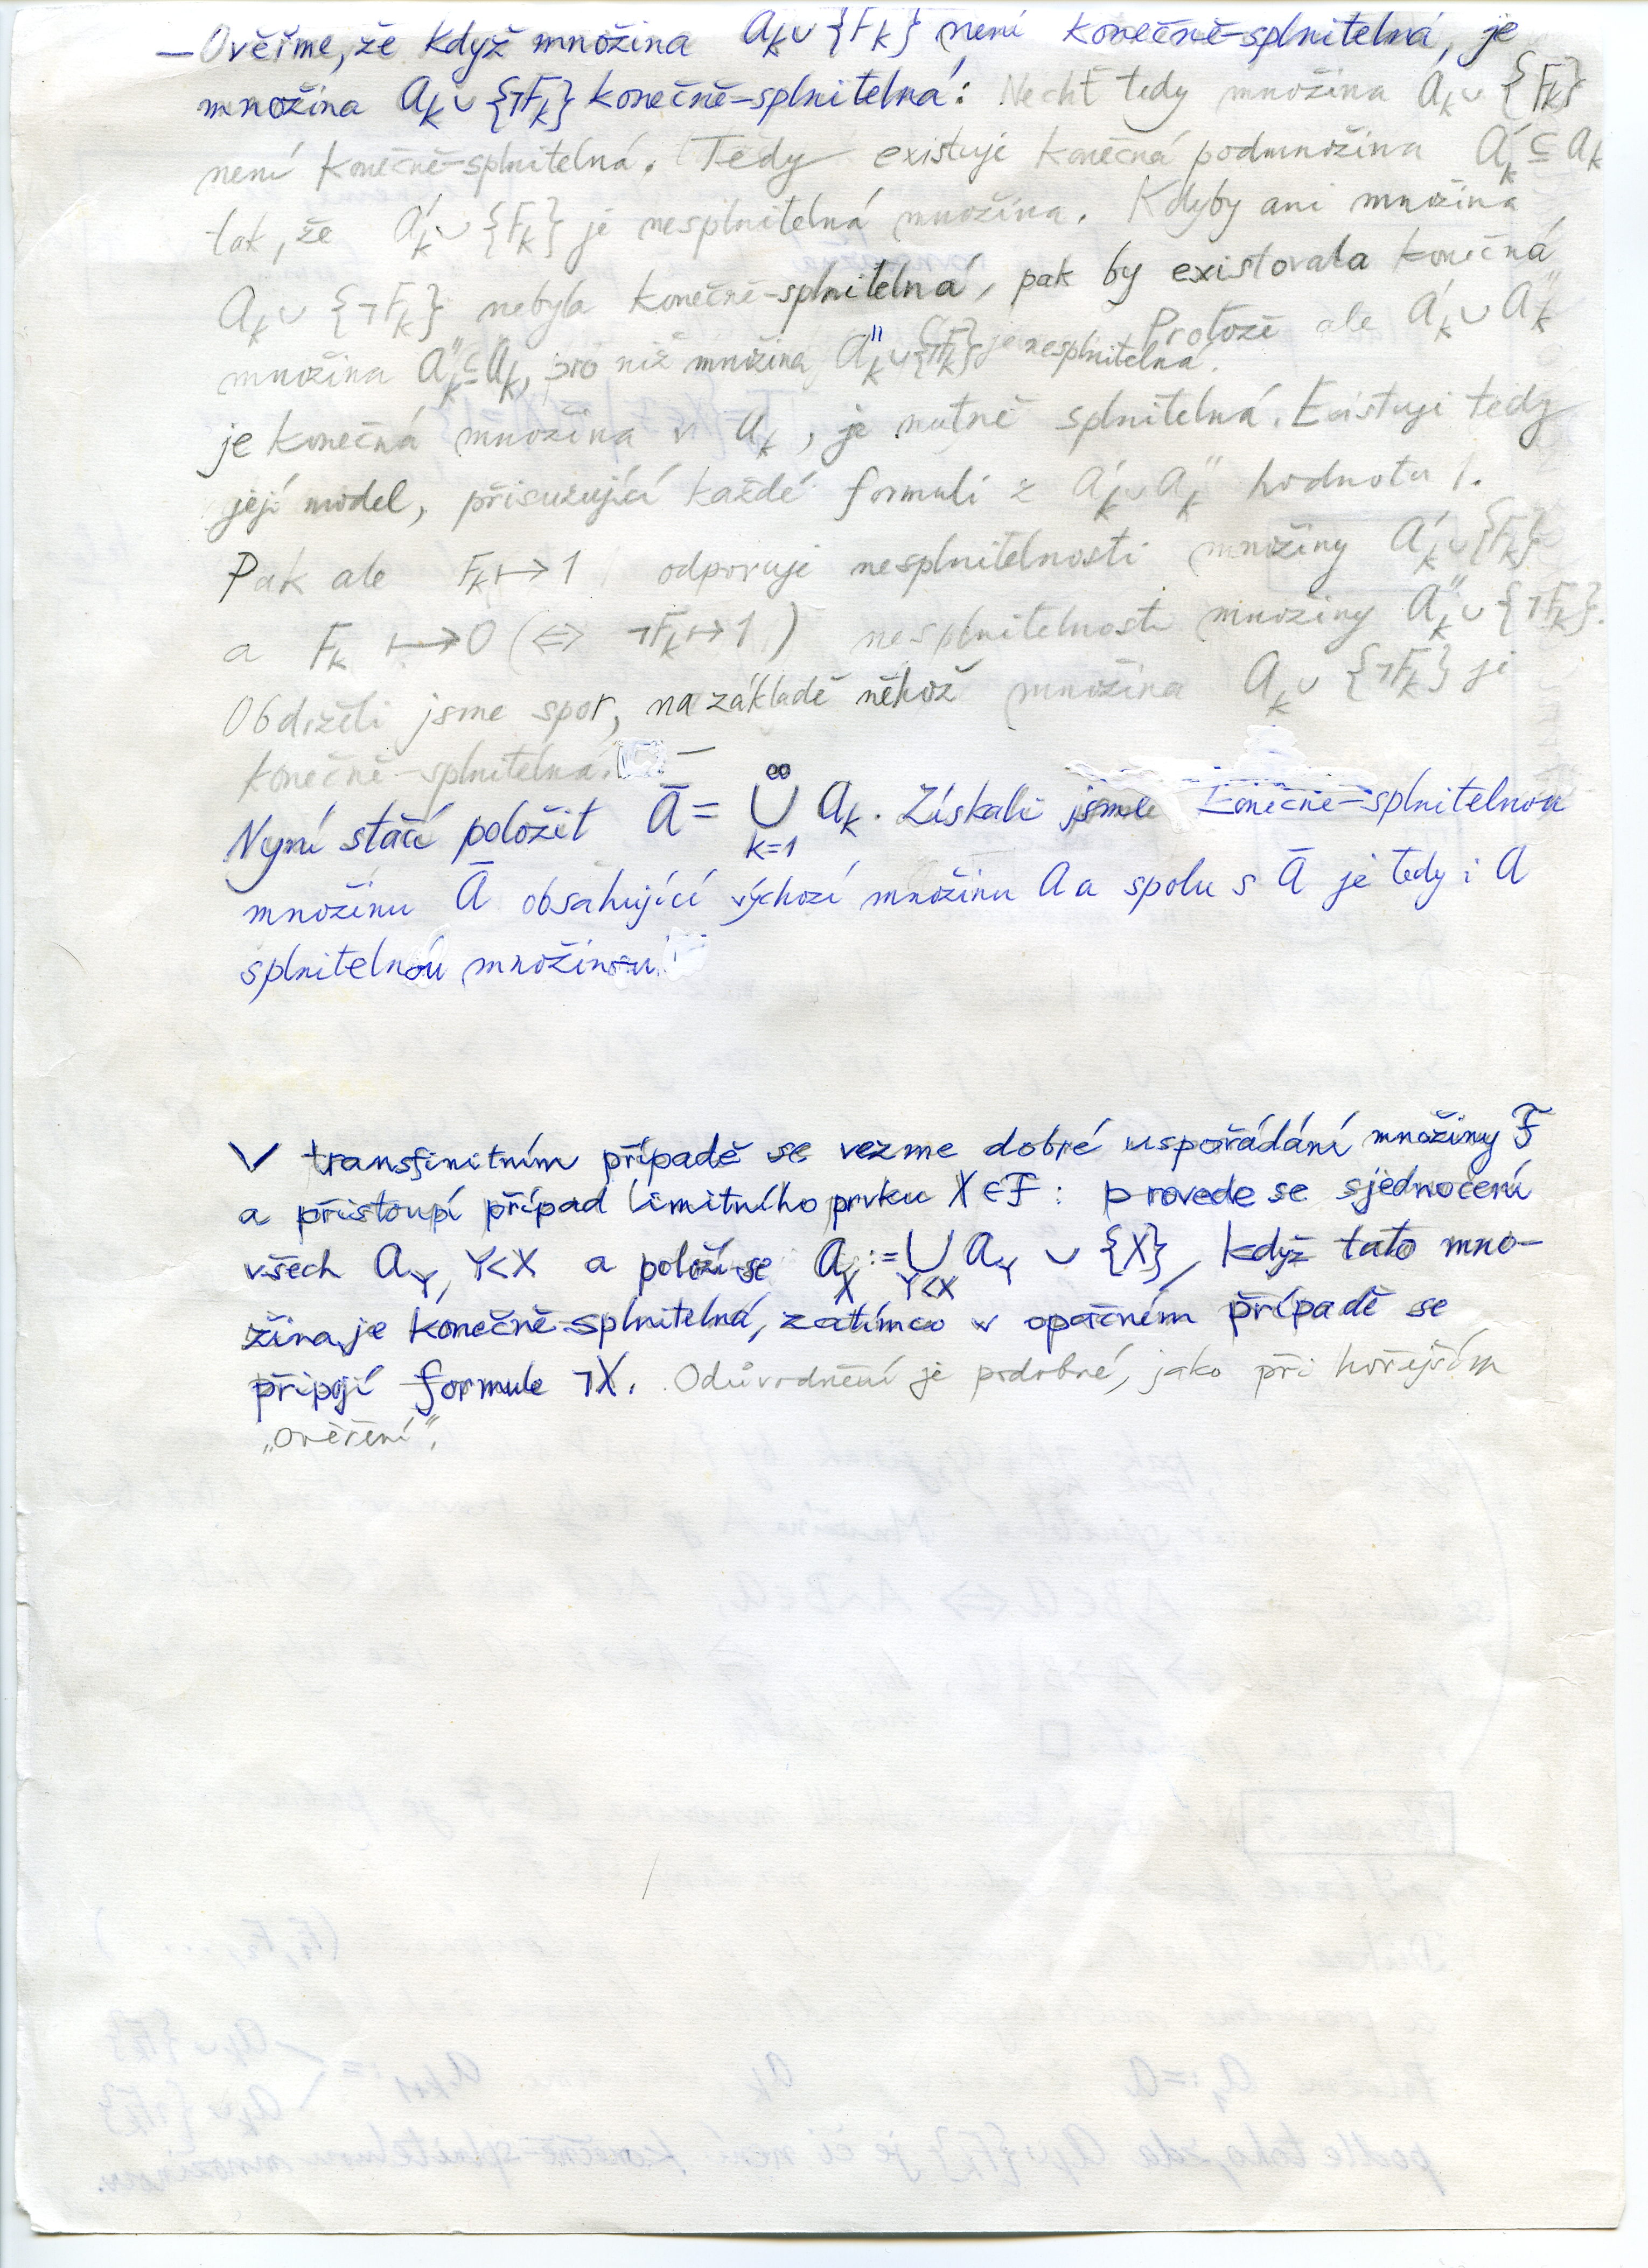 — Ověřme, že když množina 𝒜ₖ ∪ {Fₖ} není konečně-splnitelná, je
množina 𝒜ₖ ∪ {¬Fₖ} konečně-splnitelná: Nechť tedy množina 𝒜ₖ ∪ {Fₖ}
není konečně-splnitelná. Tedy existuje konečná podmnožina 𝒜ₖ′ ⊆ 𝒜ₖ
tak, že 𝒜ₖ′ ∪ {Fₖ} je nesplnitelná množina. Kdyby ani množina
𝒜ₖ ∪ {¬Fₖ} nebyla konečně-splnitelná, pak by existovala konečná
množina 𝒜ₖ″ ⊆ 𝒜ₖ, pro niž množina 𝒜ₖ″ ∪ {¬Fₖ} je nesplnitelná. Protože ale 𝒜ₖ′ ∪ 𝒜ₖ″
je konečná množina v 𝒜ₖ, je nutně splnitelná. Existuje tedy
její model, přisuzující každé formuli z 𝒜ₖ′ ∪ 𝒜ₖ″ hodnotu 1.
Pak ale Fₖ ↦ 1 odporuje nesplnitelnosti množiny 𝒜ₖ′ ∪ {Fₖ}
a Fₖ ↦ 0 (⇔ ¬Fₖ ↦ 1) nesplnitelnosti množiny 𝒜ₖ″ ∪ {¬Fₖ}.
Obdrželi jsme spor, na základě něhož množina 𝒜ₖ ∪ {¬Fₖ} je
konečně-splnitelná. —
Nyní stačí položit 𝒜̄ = ⋃_{k=1}^{∞} 𝒜ₖ. Získali jsme konečně-splnitelnou
množinu 𝒜̄ obsahující výchozí množinu 𝒜 a spolu s 𝒜̄ je tedy i 𝒜
splnitelnou množinou.
V transfinitním případě se vezme dobré uspořádání množiny ℱ
a přistoupí případ limitního prvku X ∈ ℱ : provede se sjednocení
všech 𝒜_Y, Y<X a položí se 𝒜_X := ⋃_{Y<X} 𝒜_Y ∪ {X}, když tato mno-
žina je konečně-splnitelná, zatímco v opačném případě se
připojí formule ¬X. Odůvodnění je podobné, jako při hořejším
„ověření".